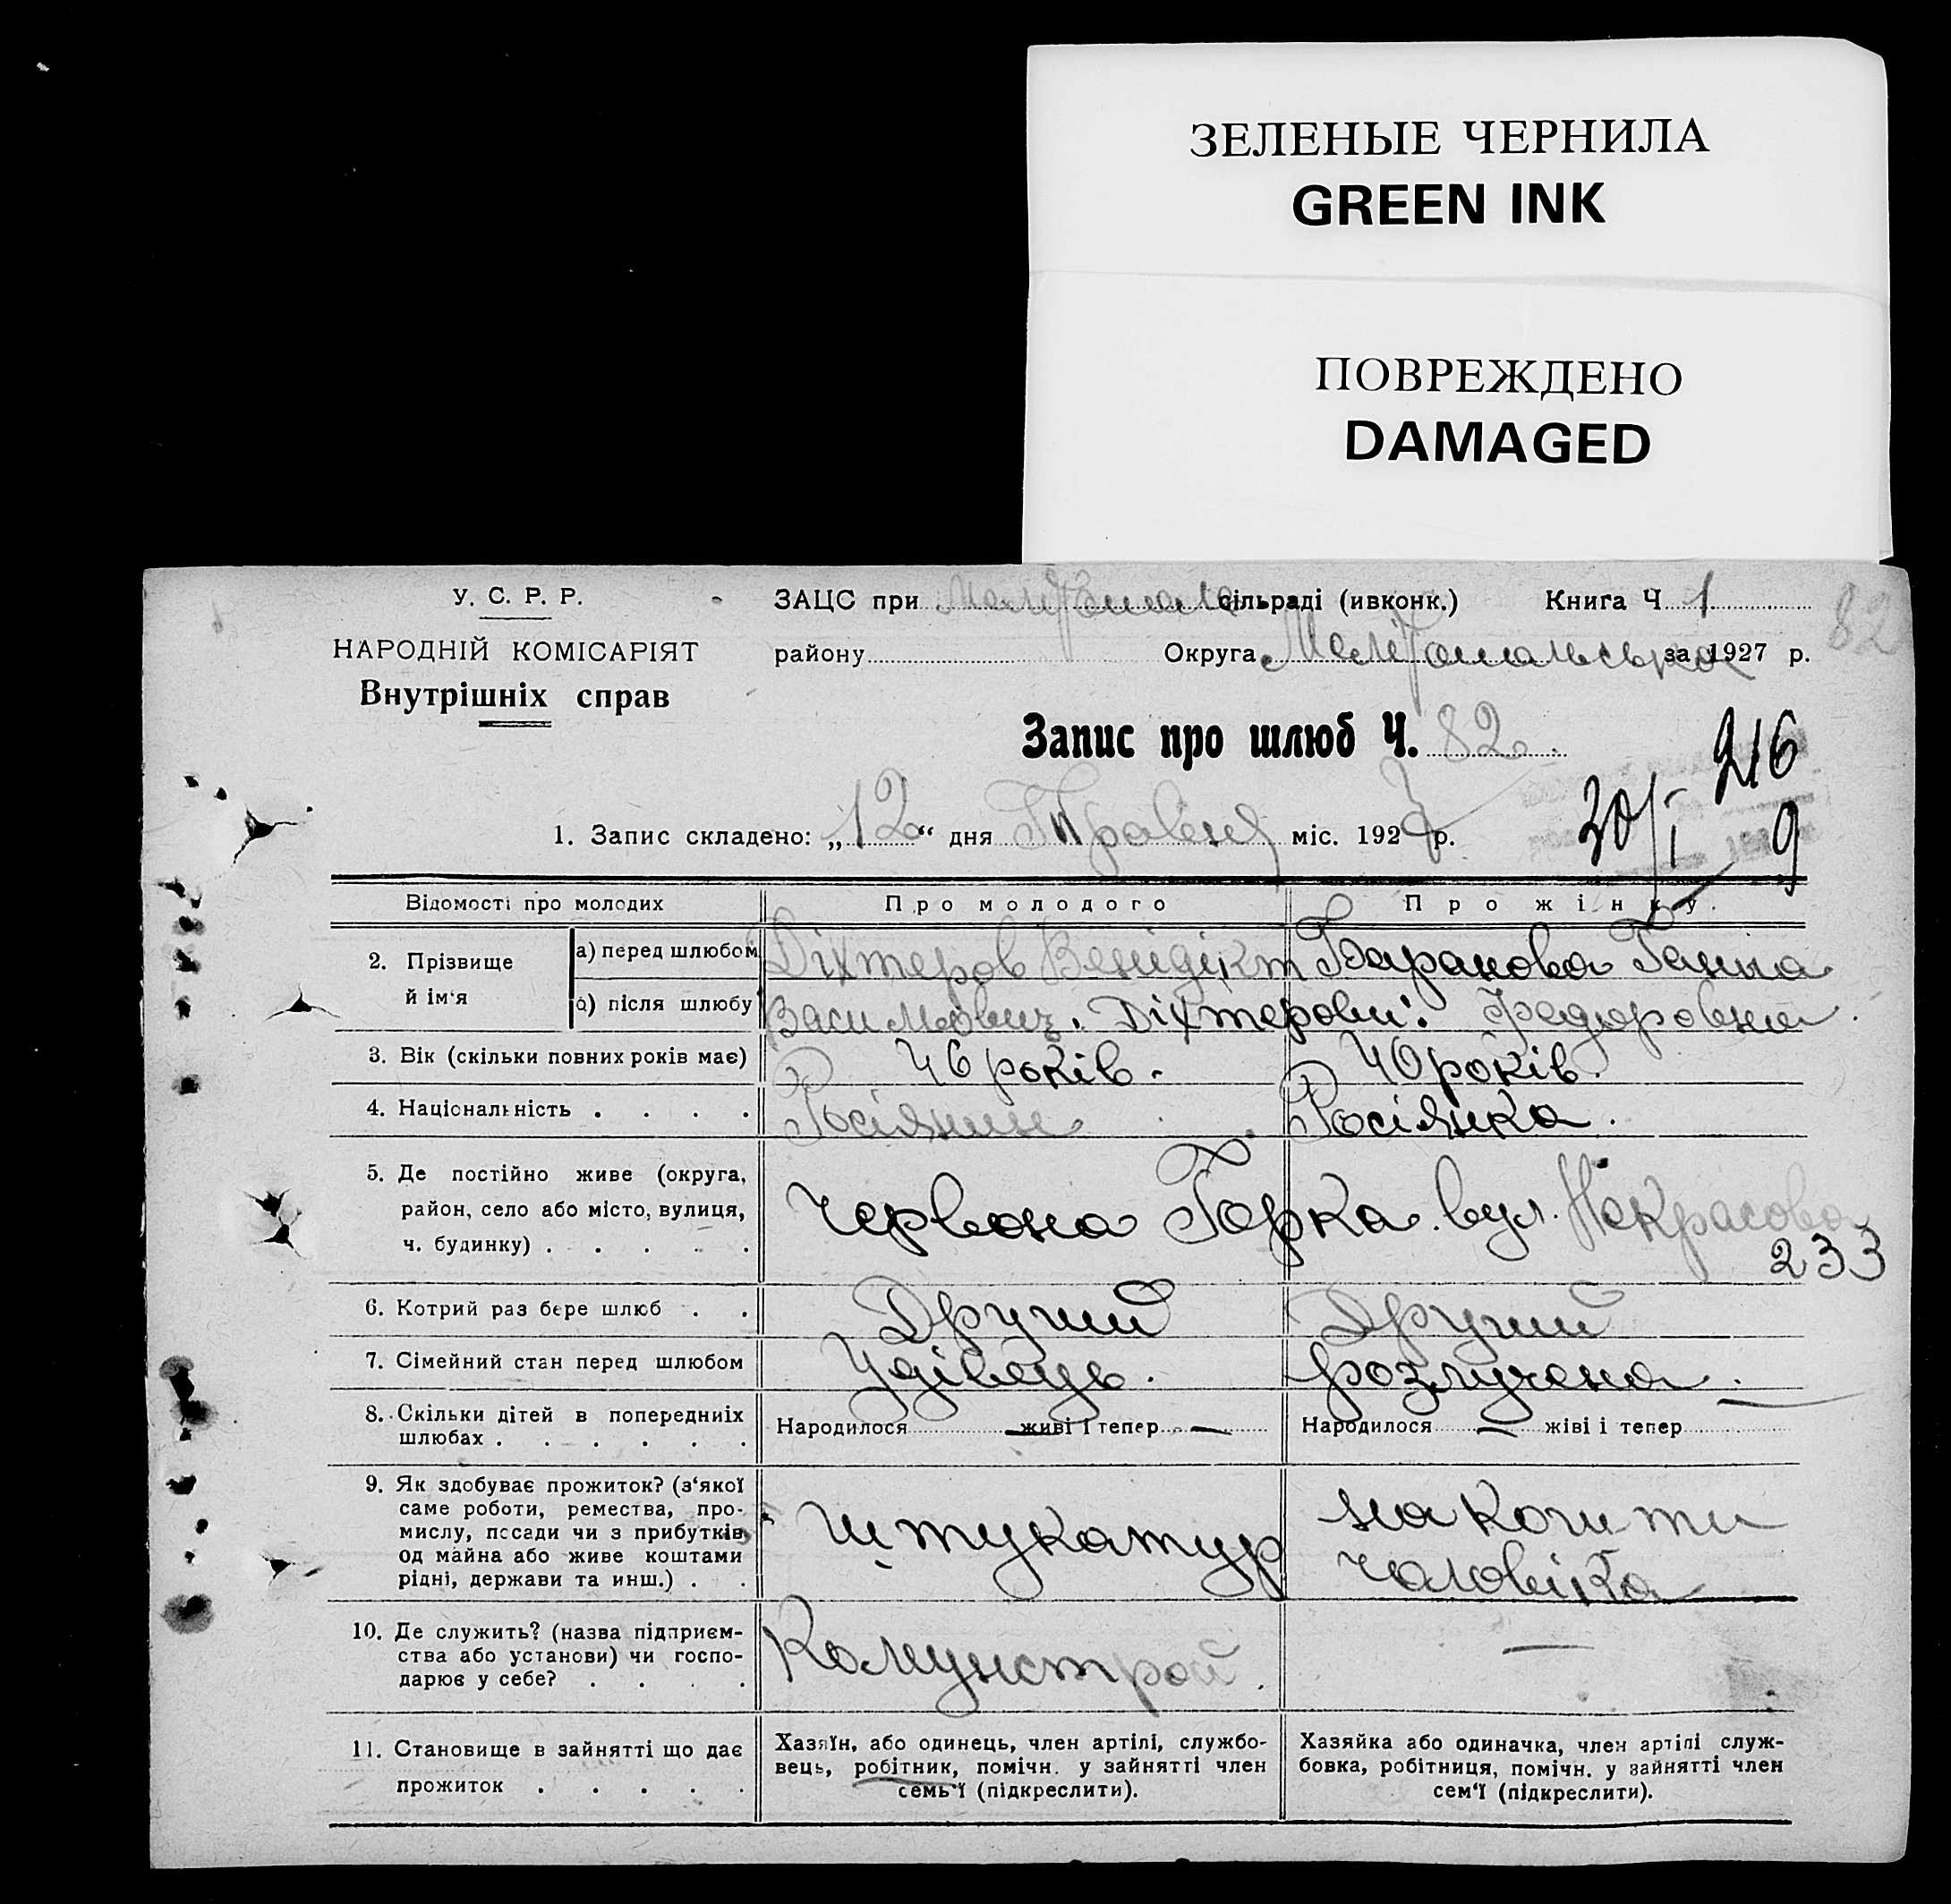 ЗЕЛЕНЫЕ ЧЕРНИЛА
GREEN INK
ПОВРЕЖДЕНО
DAMAGED
У. С. Р. Р.
НАРОДНІЙ КОМІСАРІЯТ
Внутрішніх справ
ЗАЦС при сільраді (ивконк.) Книга Ч 1
82
району Округа Мелітопольська за 1927 р.
Запис про шлюб Ч. 82
216
30/I 9
1. Запис складено: „12“ дня Травня міс. 1927 р.
Відомості про молодих Про молодого Про жінку.
2. Прізвище й ім'я
а) перед шлюбом Діхтеров Венідікт Баранова Ганна
б) після шлюбу Васильович. Діхтерови. Федоровна
3. Вік (скільки повних років має) 46 років. 40 років.
4. Національність . . . . Росіянин Росіянка.
5. Де постійно живе (округа,
район, село або місто, вулиця,
ч. будинку) . . . . .
Червона Горка. вул. Некрасова
233
6. Котрий раз бере шлюб . . Другий Другий
7. Сімейний стан перед шлюбом Удівець. розлучена.
8. Скільки дітей в попередниіх
шлюбах . . . . . .
Народилося — живі і тепер — Народилося — жіві і тепер
9. Як здобуває прожиток? (з'якої
саме роботи, ремества, про-
мислу, посади чи з прибутків
од майна або живе коштами
рідні, держави та инш.) . .
Штукатур
на кошти
чоловіка
10. Де служить? (назва підприєм-
ства або установи) чи госпо-
дарює у себе? . . . .
Комунстрой. —
11. Становище в зайнятті що дає
прожиток . . . . .
Хазяїн, або одинець, член артілі, службо-
вець, робітник, помічн. у зайнятті член
семь'ї (підкреслити).
Хазяйка або одиначка, член артілі служ-
бовка, робітниця, помічн. у зайнятті член
сем'ї (підкреслити).